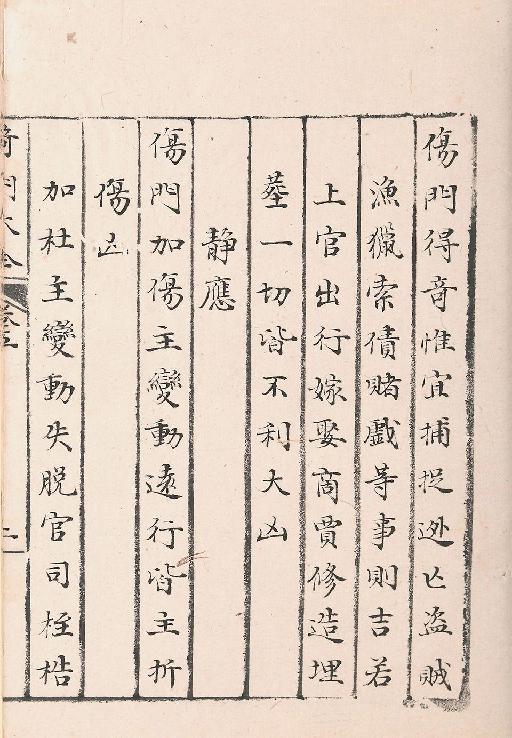 傷門得奇惟宜捕捉逃亡盗賊
漁獵索債賭戲等事則吉若
上官出行嫁娶商賈修造埋
葬一切皆不利大凶
靜應
傷門加傷主變動遠行皆主折
傷凶
加杜主變動失脱官司桎梏
奇門大全 卷三